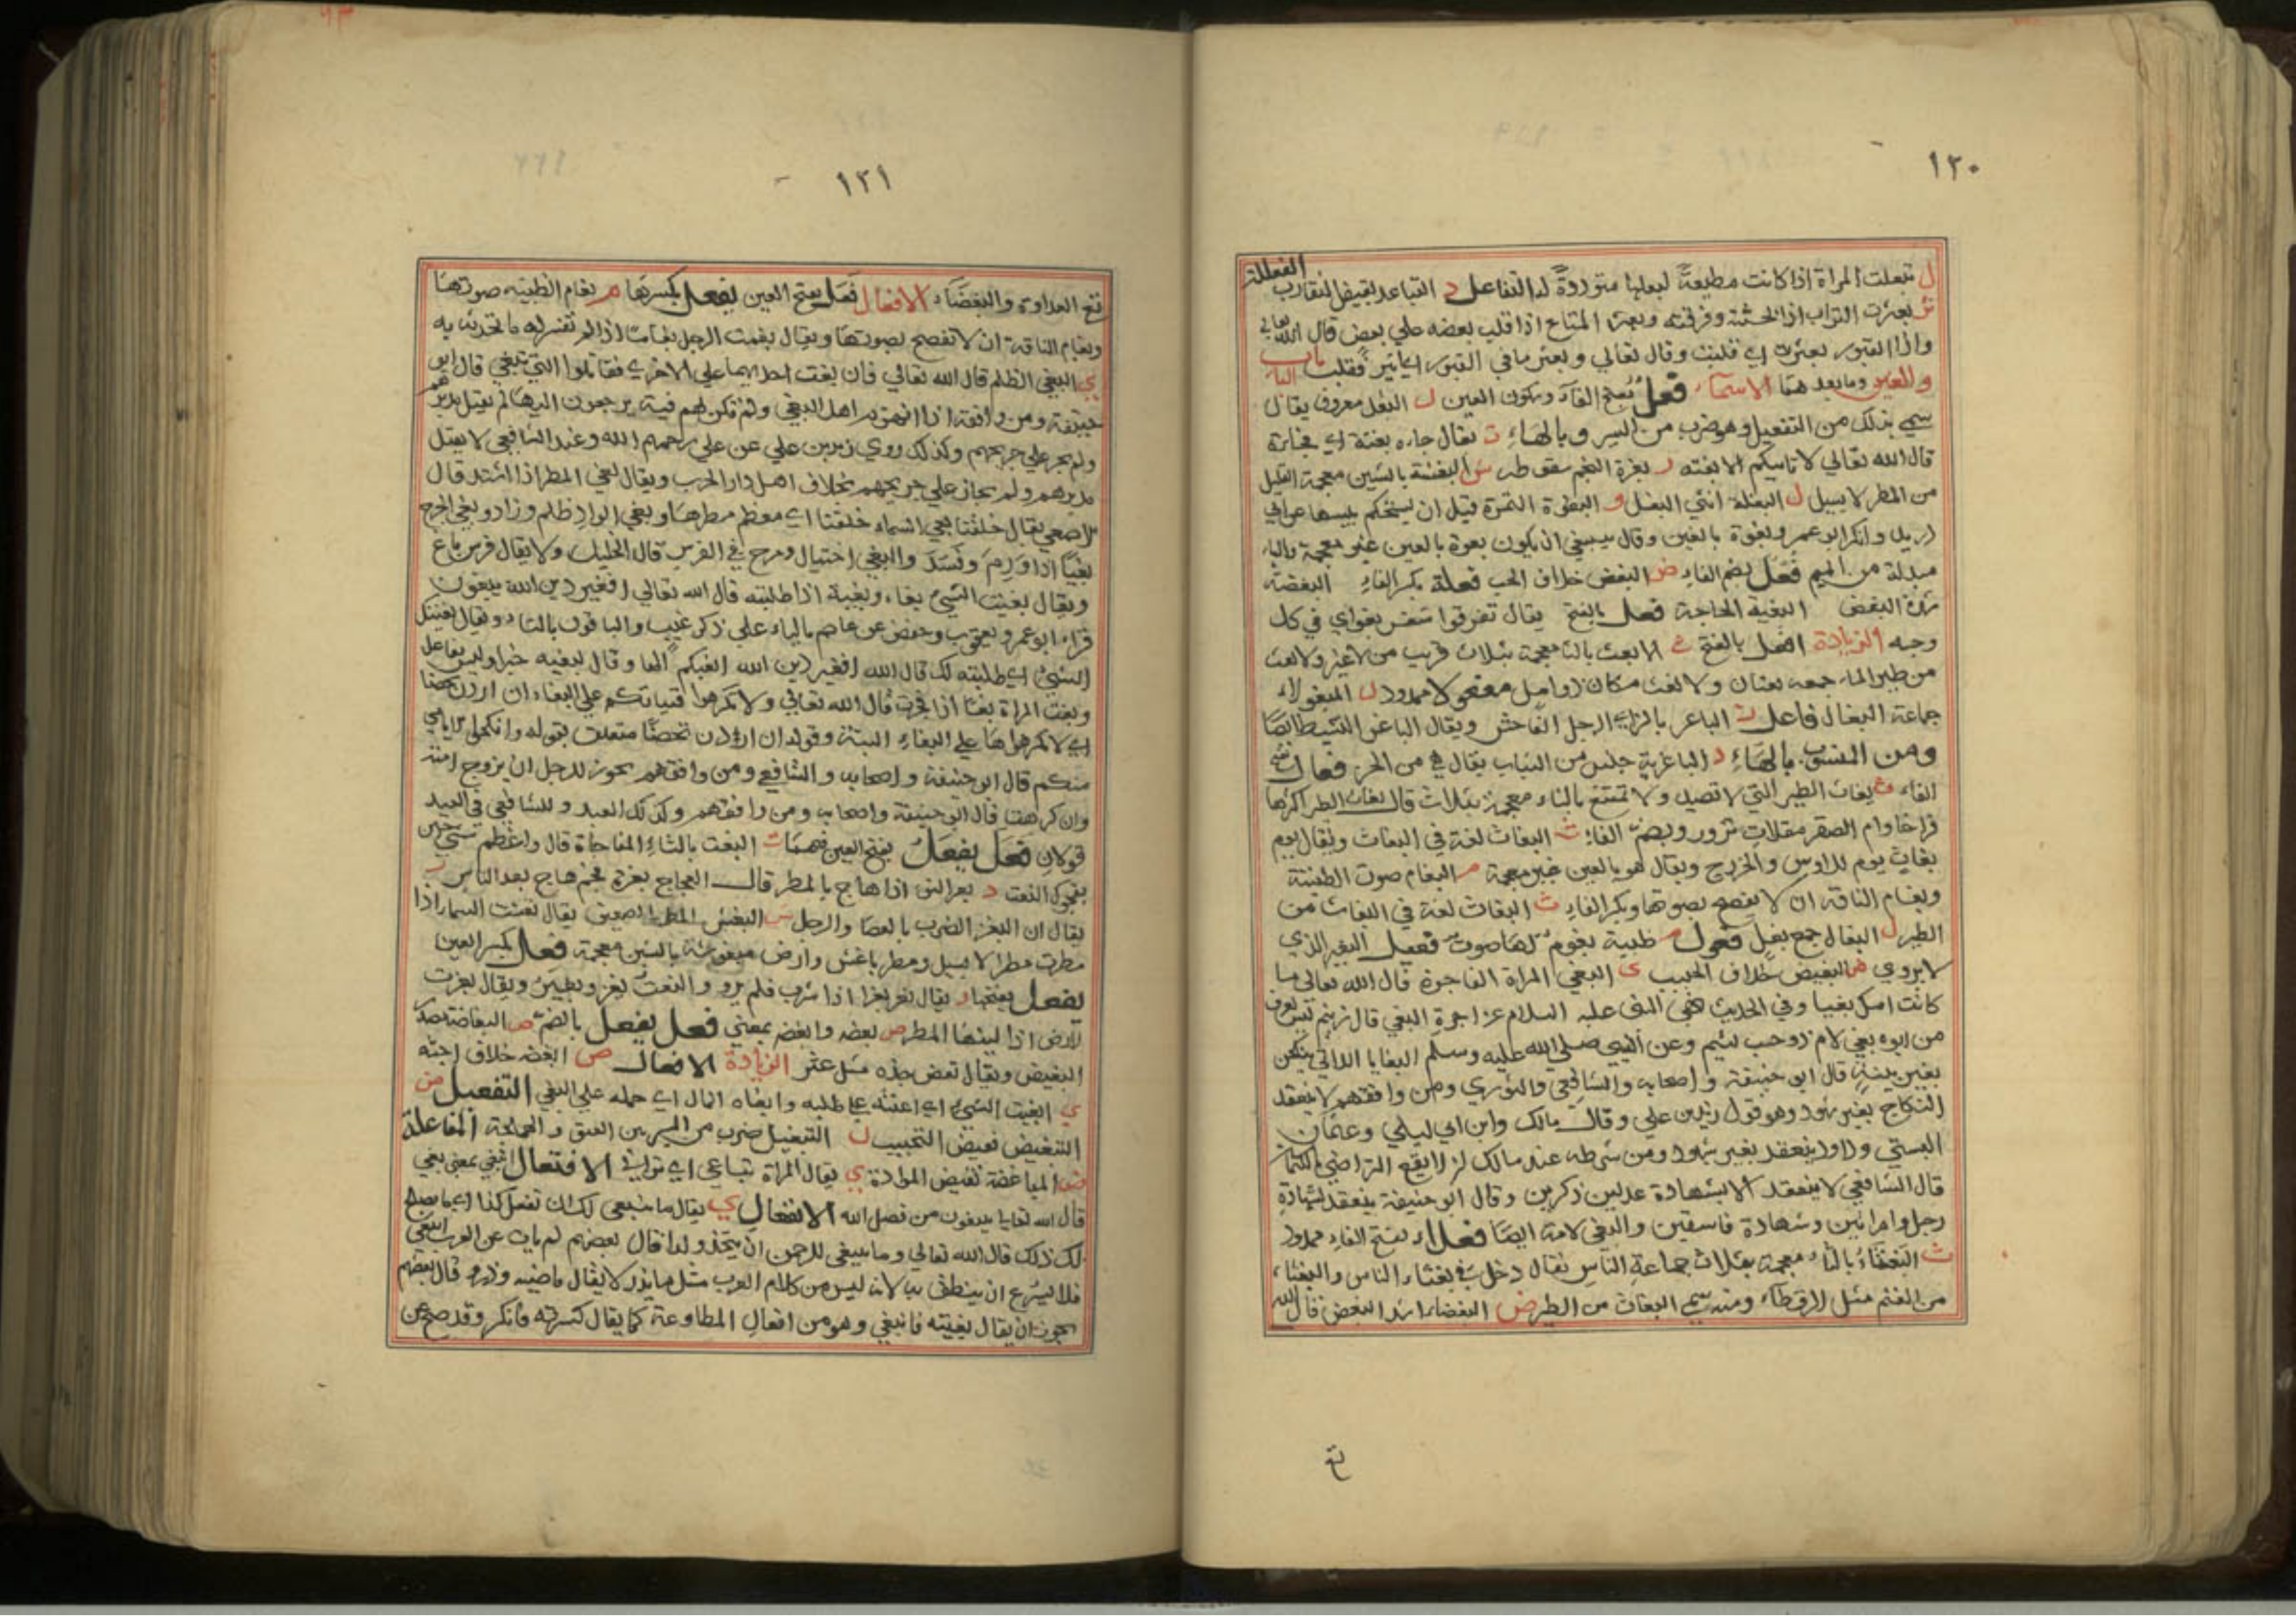 ١٢٠
ل تبعلت المراة اذا كانت مطيعةً لبعلها متوددةً له التفاعل د التباعد نقيض التقارب الفعللة
ثر بعثرت التراب اذا بحثته وفرقته وبعثر المتاع اذا قلب بعضه على بعض قال الله تعالى
واذا القبور بعثرت اي قلبت وقال تعالى وبعثر ما في القبور اي اثير فقلب باب الباء
والغين وما بعدهما الاسماء فَعْل بفتح الفاء وسكون العين ل البغل معروف يقال
سمي بذلك من التبغيل وهو ضرب من السير وبالهاء ت يقال جاءه بغتة اي مفاجاة
قال الله تعالى لا تاتيكم الا بغتة ر بغرة النجم سقوطه ش البغشة بالشين معجمة القليل
من المطر لا يسيل ل البغلة انثى البغل و البغوة التمرة قبل ان يستحكم يبسها عن ابي
دريد وانكر ابو عمرو بغوة بالغين وقال ينبغي ان يكون بعوة بالعين غير معجمة والباء
مبدلة من الميم فُعْل بضم الفاء ض البغض خلاف الحب فعلة بكسر الفاء البغضة
شدة البغض البغية الحاجة فعل بالفتح يقال تفرقوا شغر بغر اي في كل
وجه الزيادة افعل بالفتح ث الابغث بالثاء معجمة بثلاث قريب من الاغبر والابغث
من طير الماء جمعه بغثان والابغث مكان ذو رمل مفعولاء ممدود ل المبغولاء
جماعة البغال فاعل ز الباغز بالزاي الرجل الفاحش ويقال الباغز النشيط ايضا
ومن المنسوب بالهاء ز الباغزية جنس من الثياب يقال هي من الخز فعال بفتح
الفاء ث بغاث الطير التي لا تصيد ولا تمتنع بالثاء معجمة بثلاث قال بغاث الطير اكثرها
فراخا وام الصقر مقلات نزور وبضم الفاء ث البغاث لغة في البغاث ويقال يوم
بغاث يوم للاوس والخزرج ويقال هو بالعين غير معجمة م البغام صوت الظبية
وبغام الناقة ان لا يفصح بصوتها وبكسر الفاء ث البغاث لغة في البغاث من
الطير ل البغال جمع بغل فعول م ظبية بغوم لها صوت فعيل البغير الذي
لا يروى ض البغيض خلاف الحبيب ى البغي المراة الفاجرة قال الله تعالى ما
كانت امك بغيا وفي الحديث نهى النبي عليه السلام عن اجرة البغي قال
من ابوه بغي لام ذو حسب لئيم وعن النبي صلى الله عليه وسلم البغايا اللاتي ينكحن
بغير بينة قال ابو حنيفة واصحابه والشافعي والثوري ومن وافقهم لا ينعقد
النكاح بغير شهود وهو قول زيد بن علي وقال مالك وابن ابي ليلى وعثمان
البستي وداود ينعقد بغير شهود ومن شرطه عند مالك ان لا يقع التراضي بالكتمان
قال الشافعي لا ينعقد الا بشهادة عدلين ذكرين وقال ابو حنيفة ينعقد بشهادة
رجل وامراتين وشهادة فاسقين والبغي الامة ايضا فعلاء بفتح الفاء ممدود
ث البغثاء بالثاء معجمة بثلاث جماعة الناس يقال دخل في بغثاء الناس والبغثاء
من الغنم مثل الرقطاء ومنه سمي البغاث من الطير ض البغضاء اشد البغض قال الله
تع
١٢١
تع العداوة والبغضاء الافعال فَعَل بفتح العين يفعل بكسرها م بغام الظبية صوتها
وبغام الناقة ان لا تفصح بصوتها ويقال بغمت الرجل بغامًا اذا لم تفسر له ما تحدثه به
ي البغي الظلم قال الله تعالى فان بغت احداهما على الاخرى فقاتلوا التي تبغي قال ابو
حنيفة ومن وافقه اذا انهزم اهل البغي ولم تكن لهم فئة يرجعون اليها لم يقتل مدبرهم
ولم يجز على جريحهم وكذلك روى زيد بن علي عن علي رحمهم الله وعند الشافعي لا يقتل
مدبرهم ولم يجاز على جريحهم بخلاف اهل دار الحرب ويقال بغي المطر اذا اشتد قال
الاصمعي يقال خلفنا بغي السماء خلفنا اي معظم مطرها وبغي الوادي ظلم وزاد وبغي الجرح
بغيًا اذا وَرِمَ وفَسَدَ والبغي اختيال ومرح في الفرس قال الخليل ولا يقال فرس باغ
ويقال بغيت الشيء بغاء وبغية اذا طلبته قال الله تعالى افغير دين الله يبغون
قراء ابو عمرو ويعقوب وحفص عن عاصم بالياء على ذكر غيب والباقون بالتاء ويقال بغيتك
الشيء اي طلبته لك قال الله افغير دين الله ابغيكم الها وقال لبغيه خيرا وليس بفاعل
وبغت المراة بغاء اذا فجرت قال الله تعالى ولا تكرهوا فتياتكم على البغاء ان اردن تحصنا
اي لا تكرهوها على البغاء البتة وقوله ان اردن تحصنًا متعلق بقوله وانكحوا الايامى
منكم قال ابو حنيفة واصحابه والشافعي ومن وافقهم يجوز للرجل ان يزوج امته
وان كرهت قال ابو حنيفة واصحابه ومن وافقهم وكذلك العبد وللشافعي في العبد
قولان فعَل يفعَل بفتح العين فيهما ت البغت بالتاء المفاجاة قال واعظم شيء حين
يفجوك البغت ر بغر النوء اذا هاج بالمطر قال العجاج بغرة نجم هاج بعد الناس ز
يقال ان البغز الضرب بالعصا والرجل ش البغش المطر الضعيف يقال بغشت السماء اذا
مطرت مطرا لا يسيل ومطر باغش وارض مبغوشة بالشين معجمة فعل بكسر العين
يفعل بفتحها ر يقال بغر بغرا اذا شرب فلم يرو ويقال بغرت
الارض اذا لينها المطر ض بغضه وابغضه بمعنى فعل يفعل بالضم ض البغاضة مصدر
البغيض ويقال بغض جده مثل عثر الزيادة الافعال ض ابغضه خلاف احبه
ي ابغيت الشيء اي اعنته على طلبه وابغاه المال اي حمله على البغي التفعيل ض
التبغيض نقيض التحبيب ل التبغيل ضرب من السير بين العنق والهملجة المفاعلة
ض المباغضة نقيض الموادة ي يقال المراة تباغي اي تزاني الافتعال ابتغى بمعنى بغى
قال الله تعالى يبتغون من فضل الله الانفعال ي يقال ما ينبغي لك ان تفعل كذا اي ما يصلح
لك ذلك قال الله تعالى وما ينبغي للرحمن ان يتخذ ولدا قال بعضهم لم يات عن العرب انبغى
فلا يسرع ان ينطق به لانه ليس من كلام العرب مثل ما يذر لا يقال ماضيه وذر وقال بعضهم
يجوز ان يقال بغيته فانبغى وهو من افعال المطاوعة كما يقال كسرته فانكسر وقد صح عن